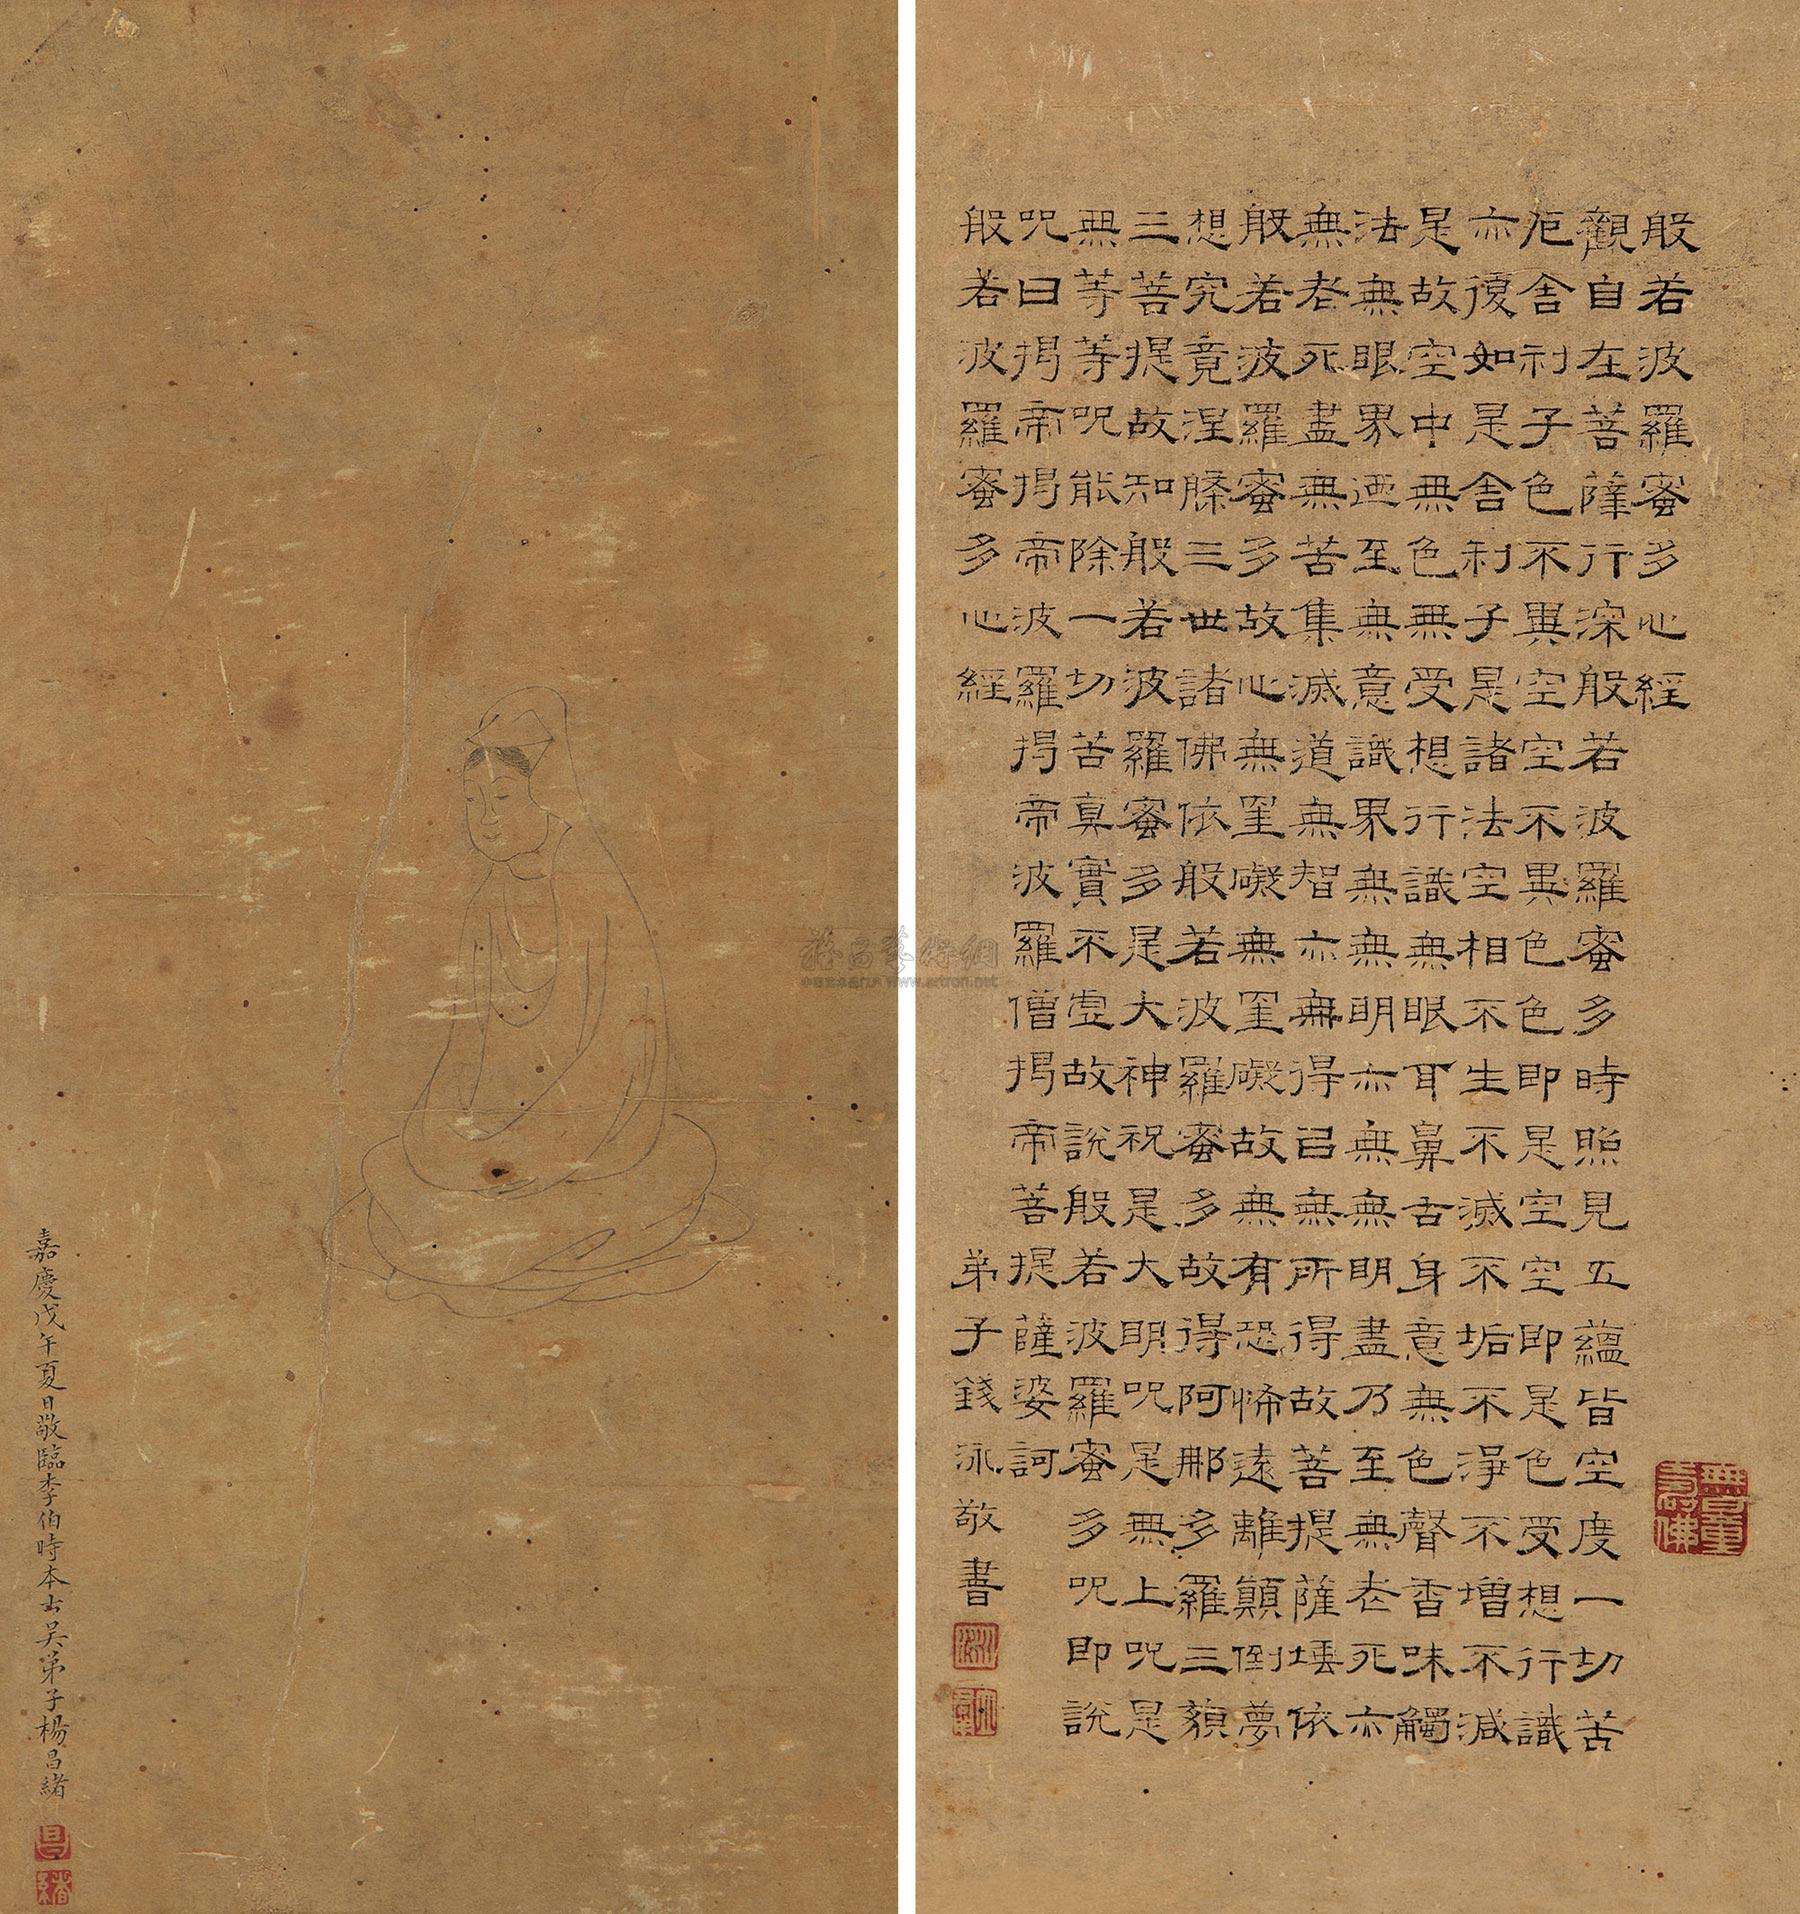 般若波羅蜜多心經
觀自在菩薩行深般若波羅蜜多時照見五蘊皆空度一切苦
厄舍利子色不異空空不異色色即是空空即是色受想行識
亦復如是舍利子是諸法空相不生不滅不垢不淨不增不減
是故空中無色無受想行識無眼耳鼻舌身意無色聲香味觸
法無眼界迺至無意識界無無明亦無無明盡乃至無老死亦
無老死盡無苦集滅道無智亦無得㠯無所得故菩提薩埵依
般若波羅蜜多故心無罣礙無罣礙故無有恐怖遠離顛倒夢
想究竟涅槃三世諸佛依般若波羅蜜多故得阿那多羅三藐
三菩提故知般若波羅蜜多是大神祝是大明咒是無上咒是
無等等咒能除一切苦真實不虛故說般若波羅蜜多咒即說
咒曰揭帝揭帝波羅揭帝波羅僧揭帝菩提薩婆訶
般若波羅蜜多心經 弟子錢泳敬書
無量壽佛
嘉慶戊午夏日敬臨李伯時本古吳弟子楊昌緒
昌
緒